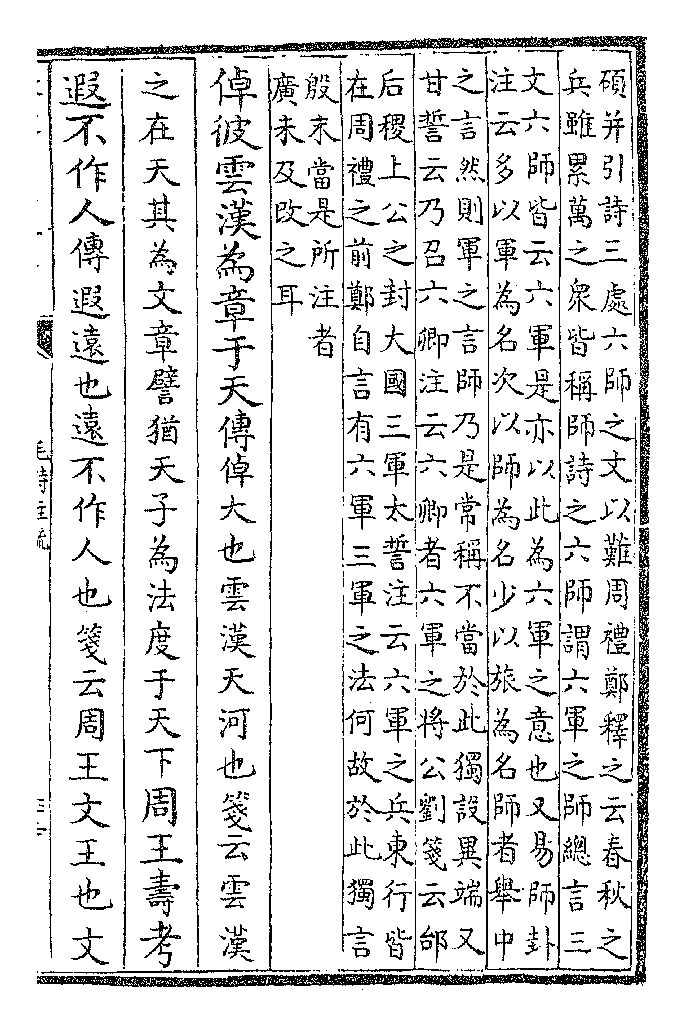 碩并引詩三處六師之文以難周禮鄭釋之云春秋之
兵雖累萬之衆皆稱師詩之六師謂六軍之師總言三
文六師皆云六軍是亦以此為六軍之意也又易師卦
注云多以軍為名次以師為名少以旅為名師者舉中
之言然則軍之言師乃是常稱不當於此獨設異端又
甘誓云乃召六卿注云六卿者六軍之將公劉箋云邰
后稷上公之封大國三軍太誓注云六軍之兵東行皆
在周禮之前鄭自言有六軍三軍之法何故於此獨言
殷末當是所注者
廣未及改之耳
倬彼雲漢為章于天傳倬大也雲漢天河也箋云雲漢
之在天其為文章譬猶天子為法度于天下周王壽考
遐不作人傳遐遠也遠不作人也箋云周王文王也文
毛詩注疏